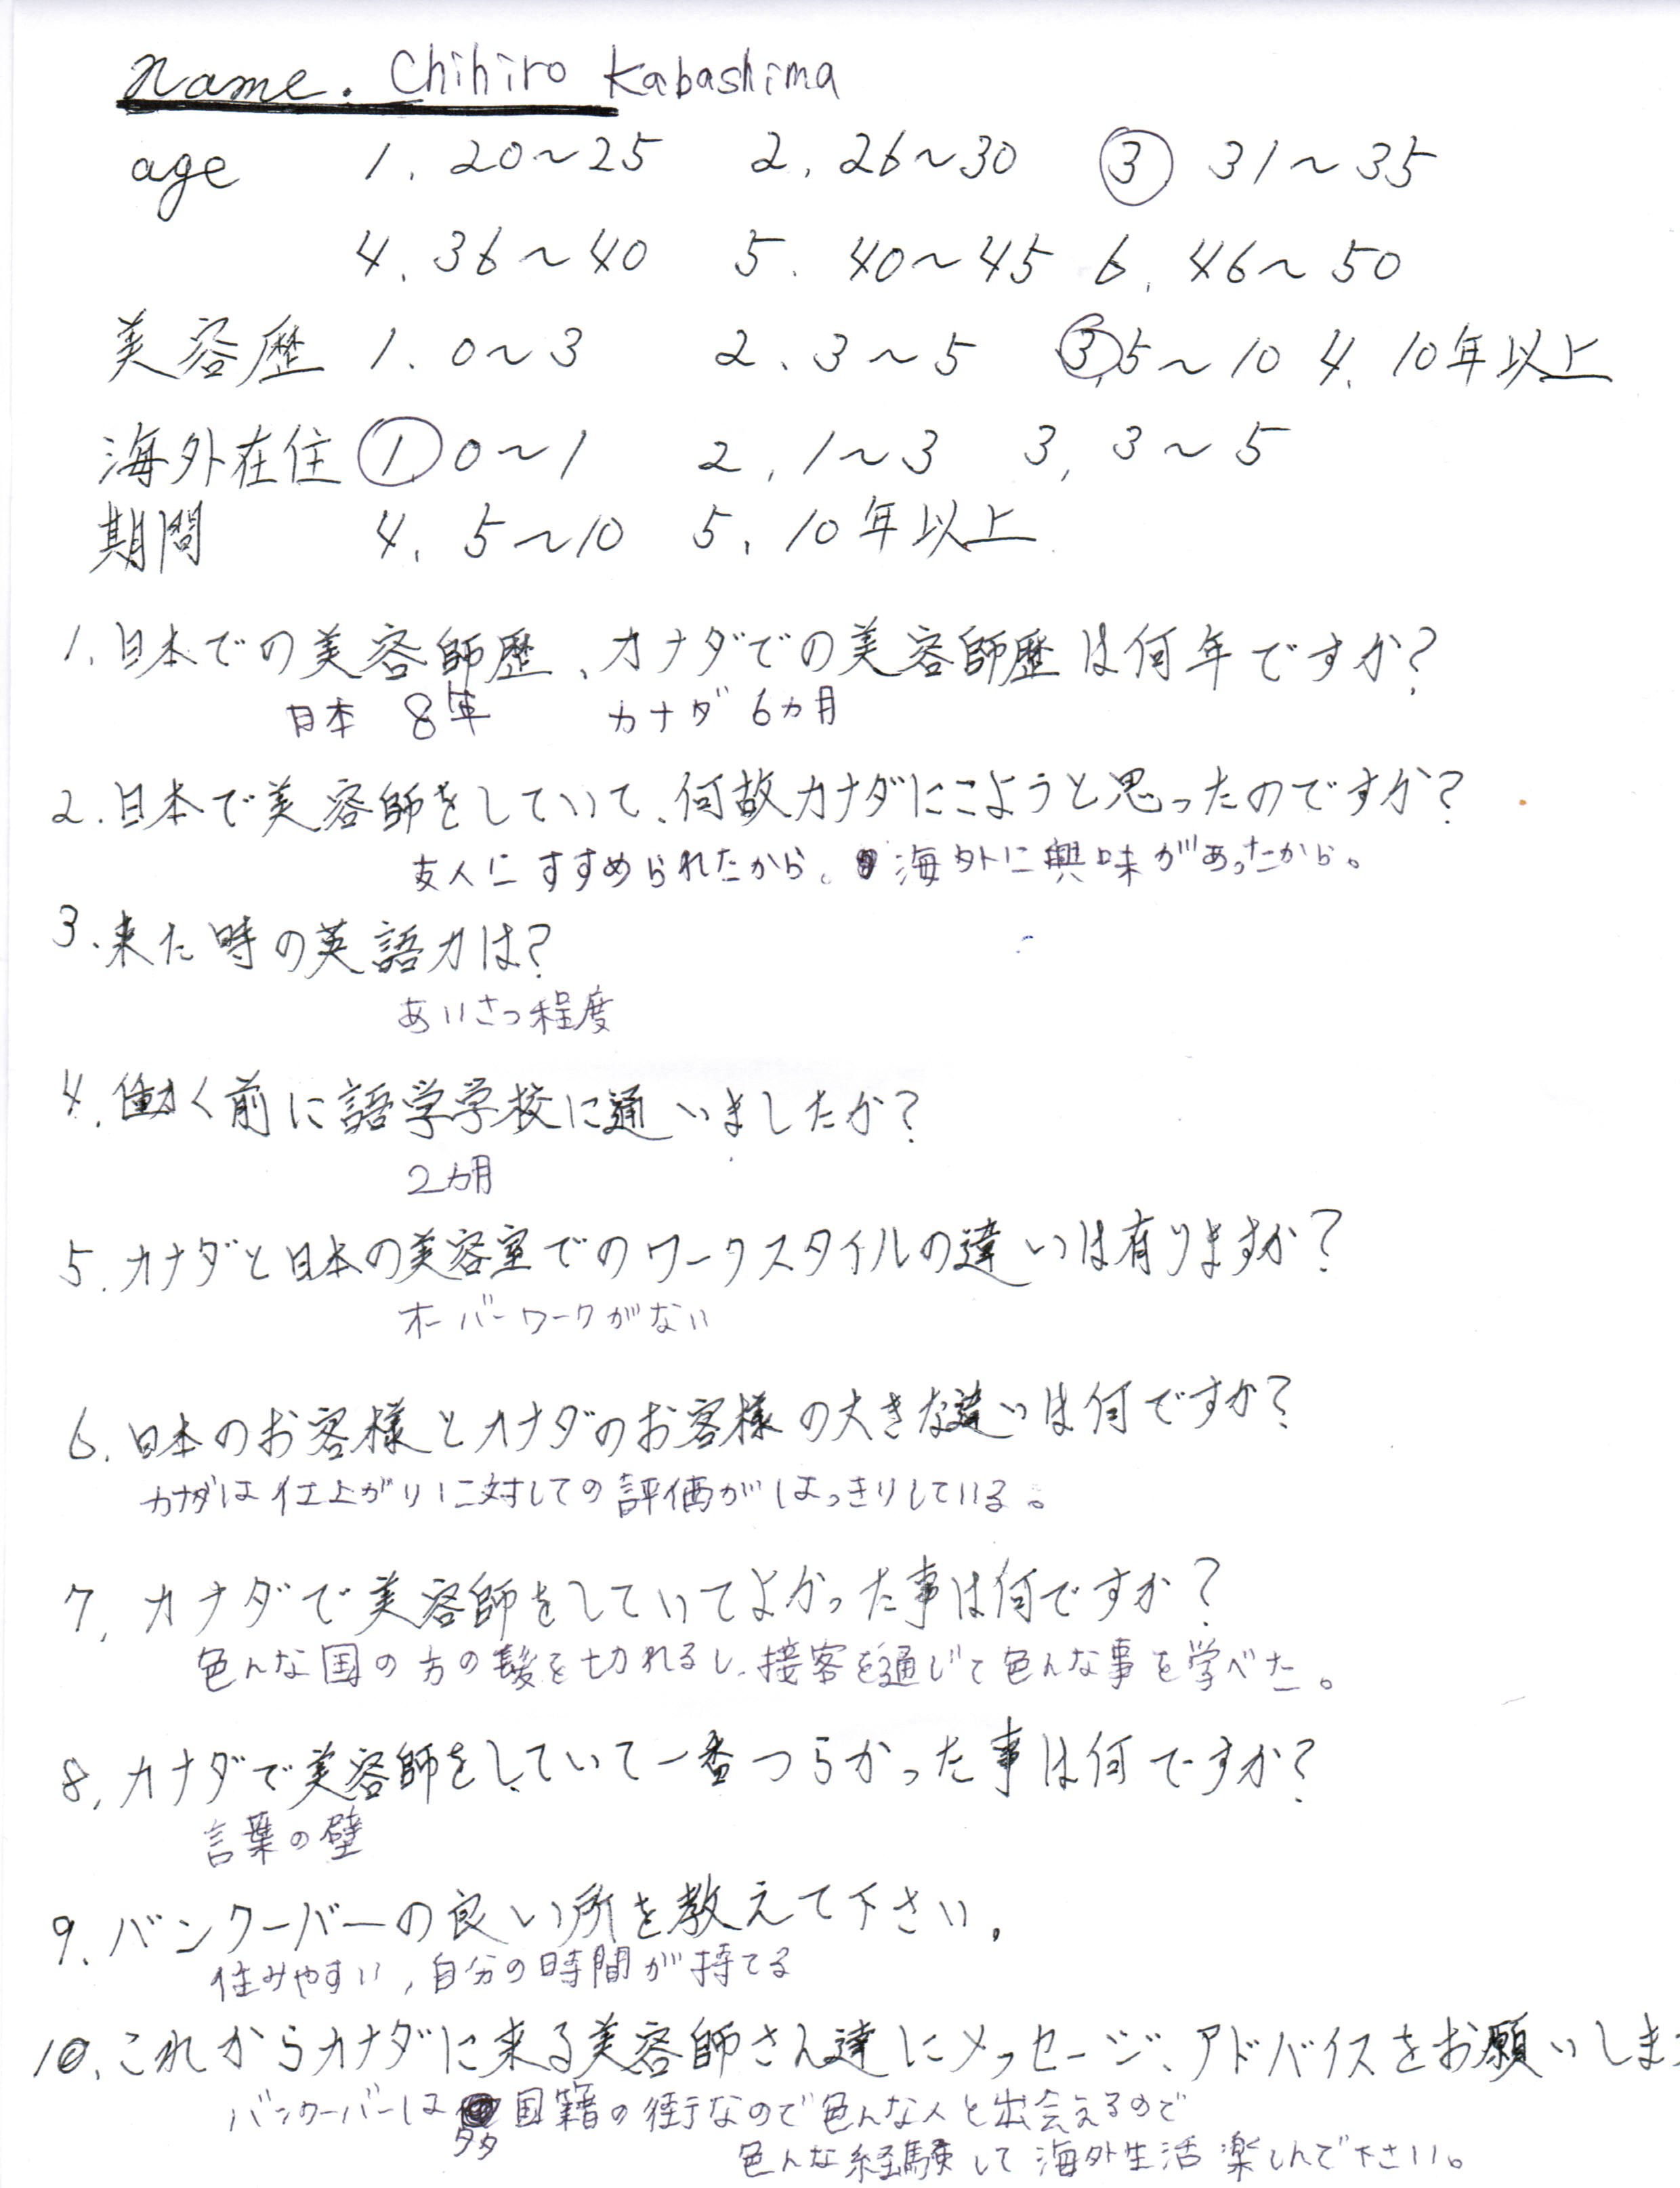 name. Chihiro Kabashima
age 1. 20～25 2. 26～30 ③ 31～35
4. 36～40 5. 40～45 6. 46～50
美容歴 1. 0～3 2. 3～5 ③ 5～10 4. 10年以上
海外在住 ① 0～1 2. 1～3 3. 3～5
期間 4. 5～10 5. 10年以上
1. 日本での美容師歴、カナダでの美容師歴は何年ですか?
日本 8年 カナダ 6カ月
2. 日本で美容師をしていて、何故カナダにこようと思ったのですか?
友人にすすめられたから。海外に興味があったから。
3. 来た時の英語力は?
あいさつ程度
4. 働く前に語学学校に通いましたか?
2カ月
5. カナダと日本の美容室でのワークスタイルの違いは有りますか?
オーバーワークがない
6. 日本のお客様とカナダのお客様の大きな違いは何ですか?
カナダは仕上がりに対しての評価がはっきりしている。
7. カナダで美容師をしていてよかった事は何ですか?
色んな国の方の髪を切れるし、接客を通じて色んな事を学べた。
8. カナダで美容師をしていて一番つらかった事は何ですか?
言葉の壁
9. バンクーバーの良い所を教えて下さい。
住みやすい, 自分の時間が持てる
10. これからカナダに来る美容師さん達にメッセージ、アドバイスをお願いしま
バンクーバーは多国籍の街なので色んな人と出会えるので
色んな経験して海外生活楽しんで下さい。